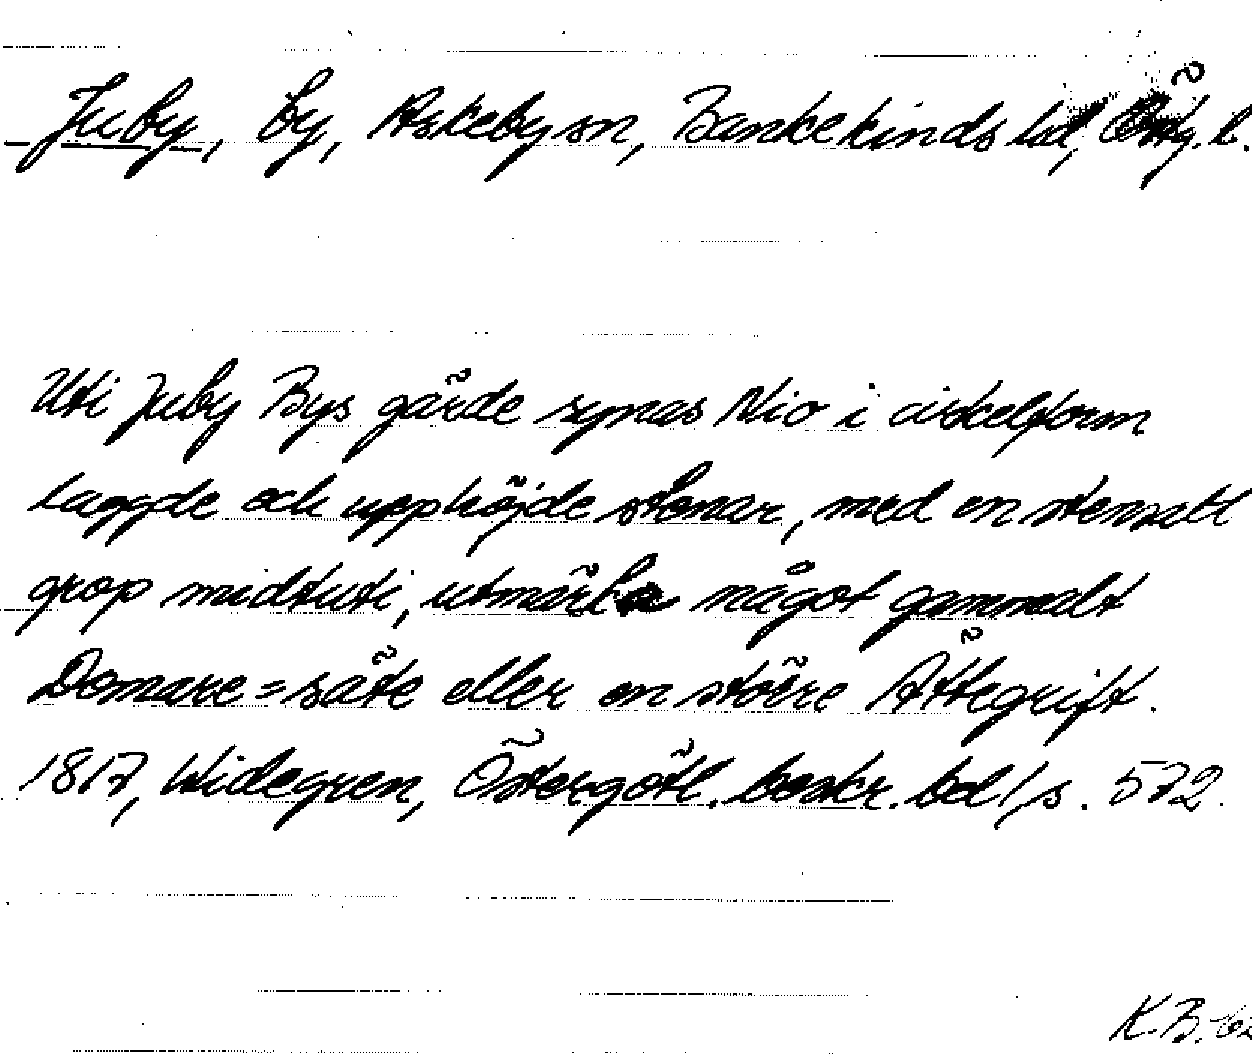 Juby, by, Askeby sn, Bankekinds hd, Östg. l.
Uti Juby Bys gärde synas Nio i cirkelform
laggde och upphöjde stenar, med en stensatt
grop midtuti, utmärka något gammalt
Domare=säte eller en större Ättegrift.
1817, Widegren, Östergötl. beskr. bd 1, s. 572.
K.B.